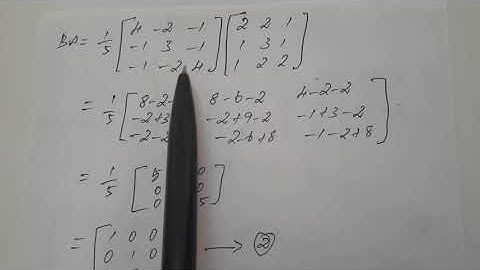 BA = 1/5 [4 -2 -1] [2 2 1]
[-1 3 -1] [1 3 1]
[-1 -2 4] [1 2 2]
= 1/5 [8-2- 8-6-2 4-2-2]
[-2+3 -2+9-2 -1+3-2]
[-2-2 -2-6+8 -1-2+8]
= 1/5 [5 0]
[0 0]
[0 5]
= [1 0 0
0 1 0 → ②